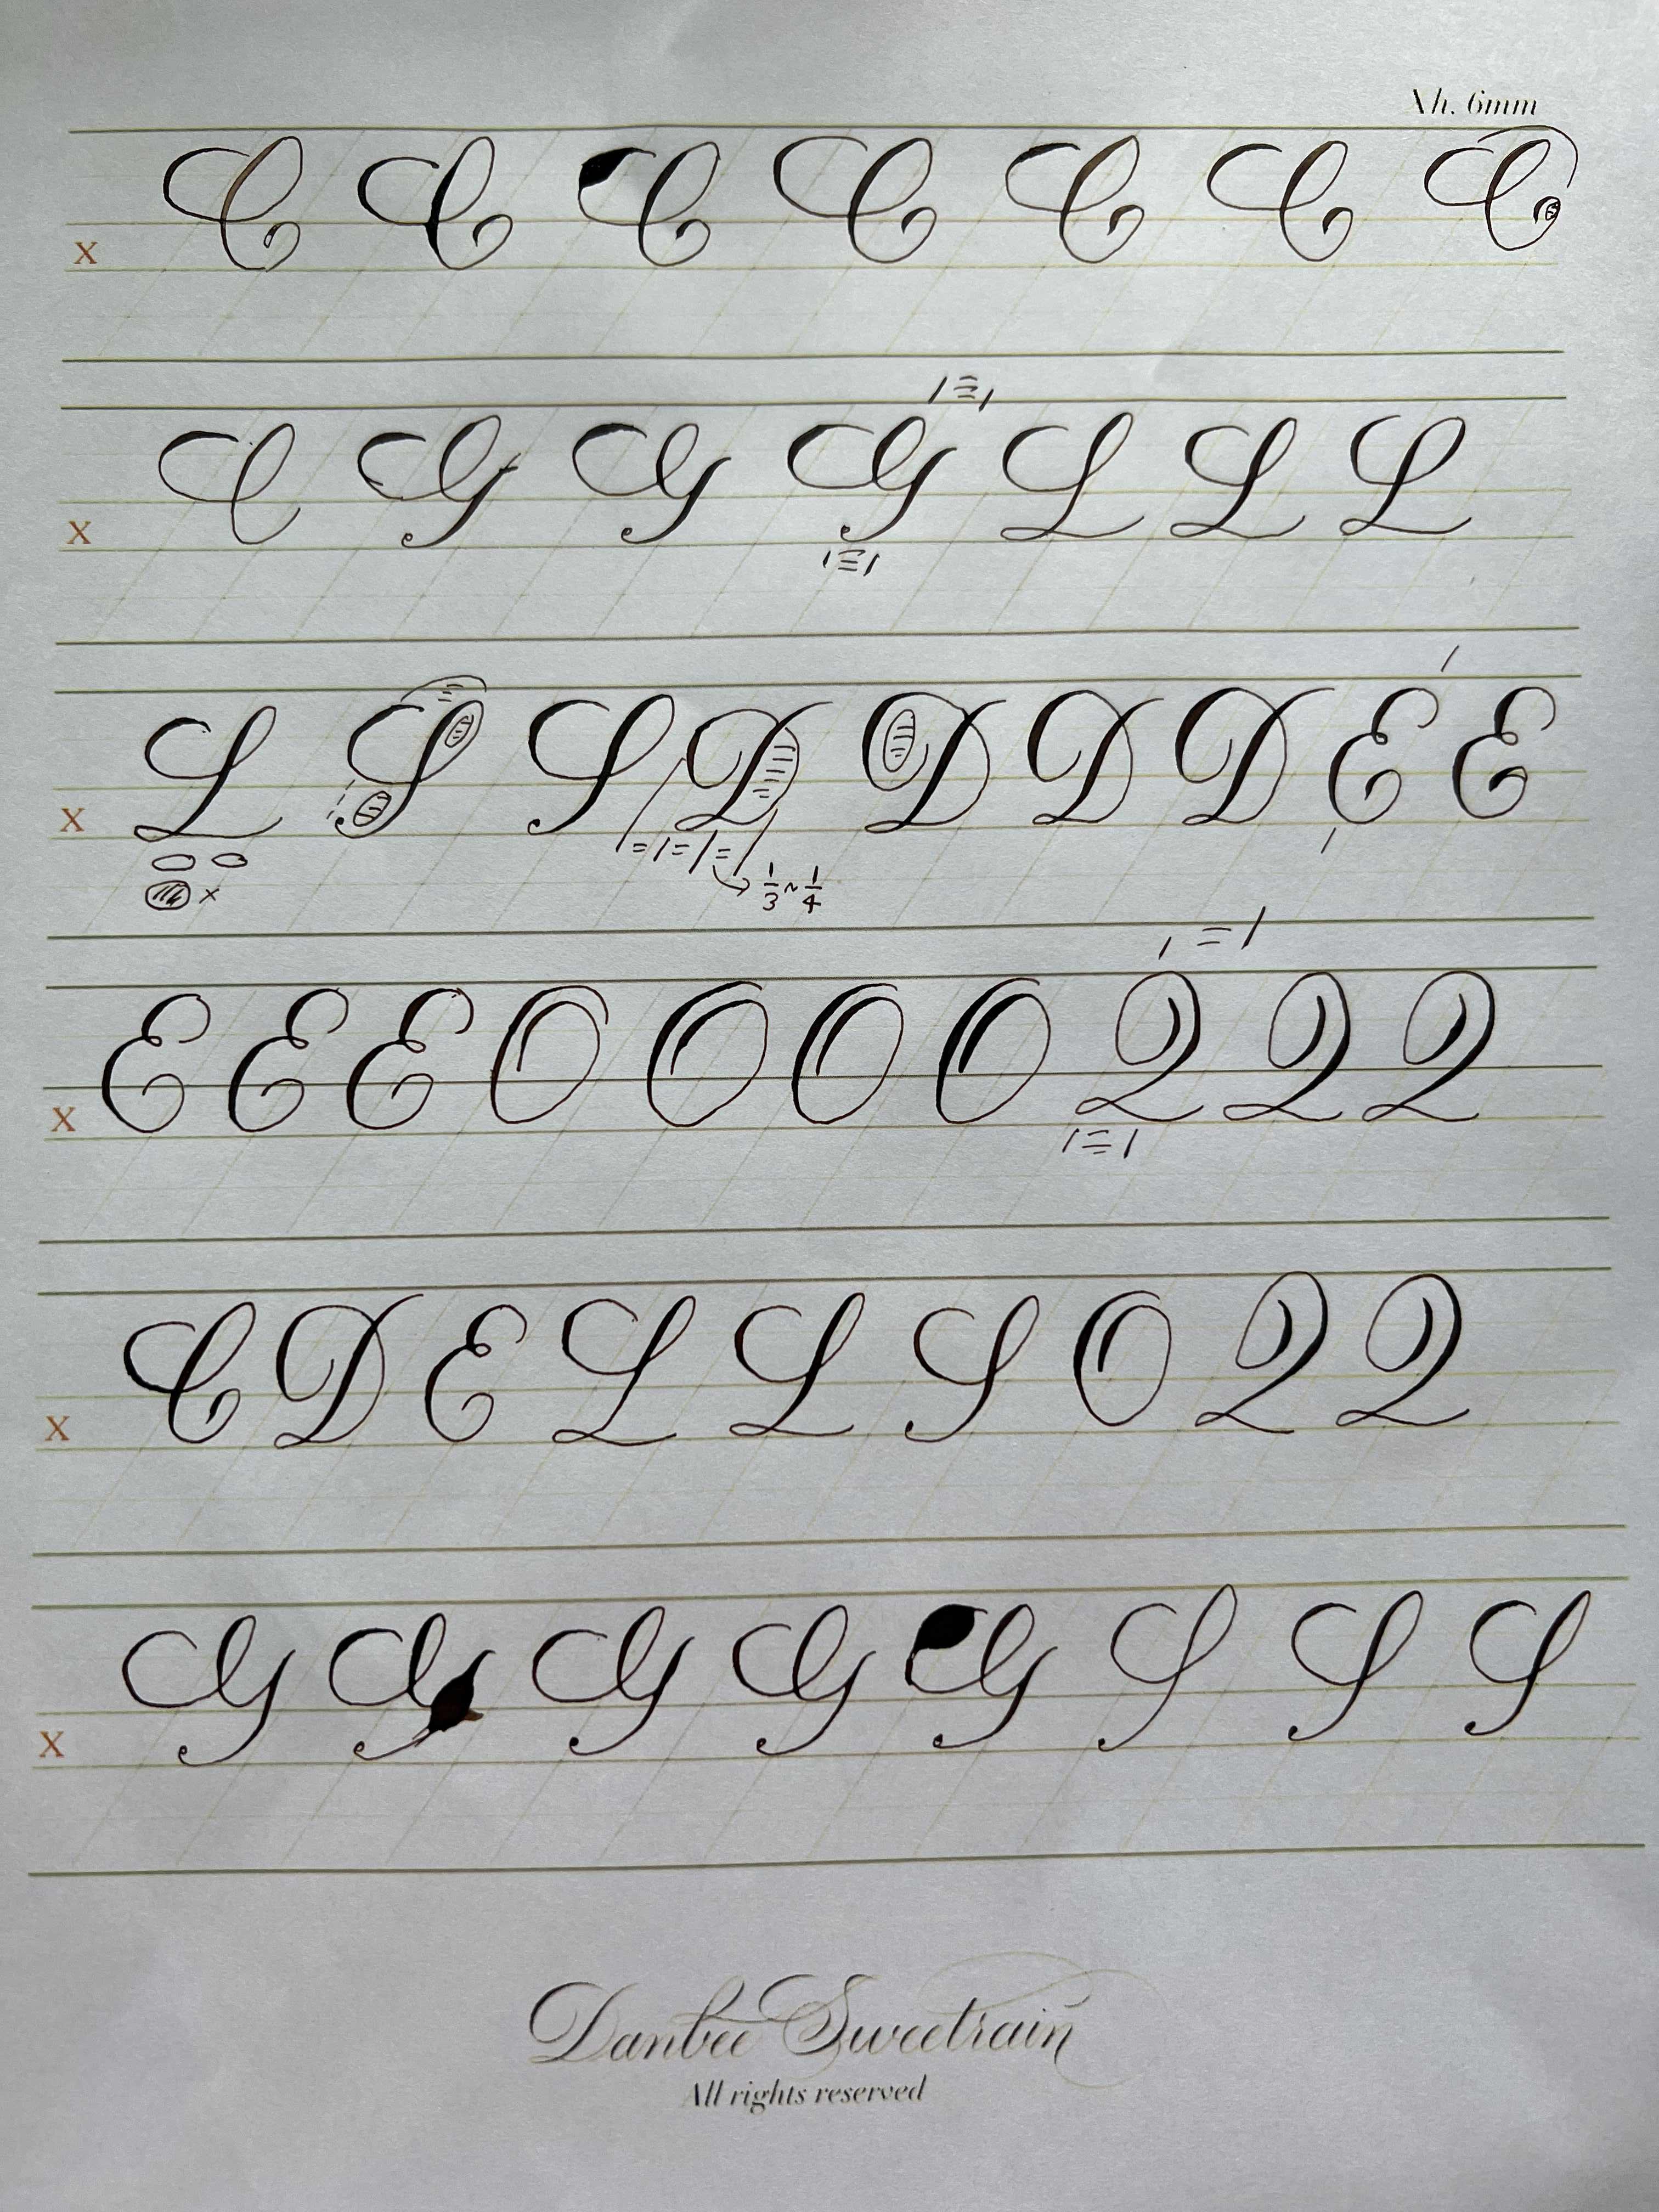 Xh. 6mm
x C C C C C C C
1≡1
x C G G G L L L
1≡1
x L S S D D D D E E
1=1=1= 1/3~1/4
x
1=1
x E E E O O O O Q Q Q
1≡1
x C D E L L S O Q Q
x G G G G G S S S
Danbee Sweetrain
All rights reserved